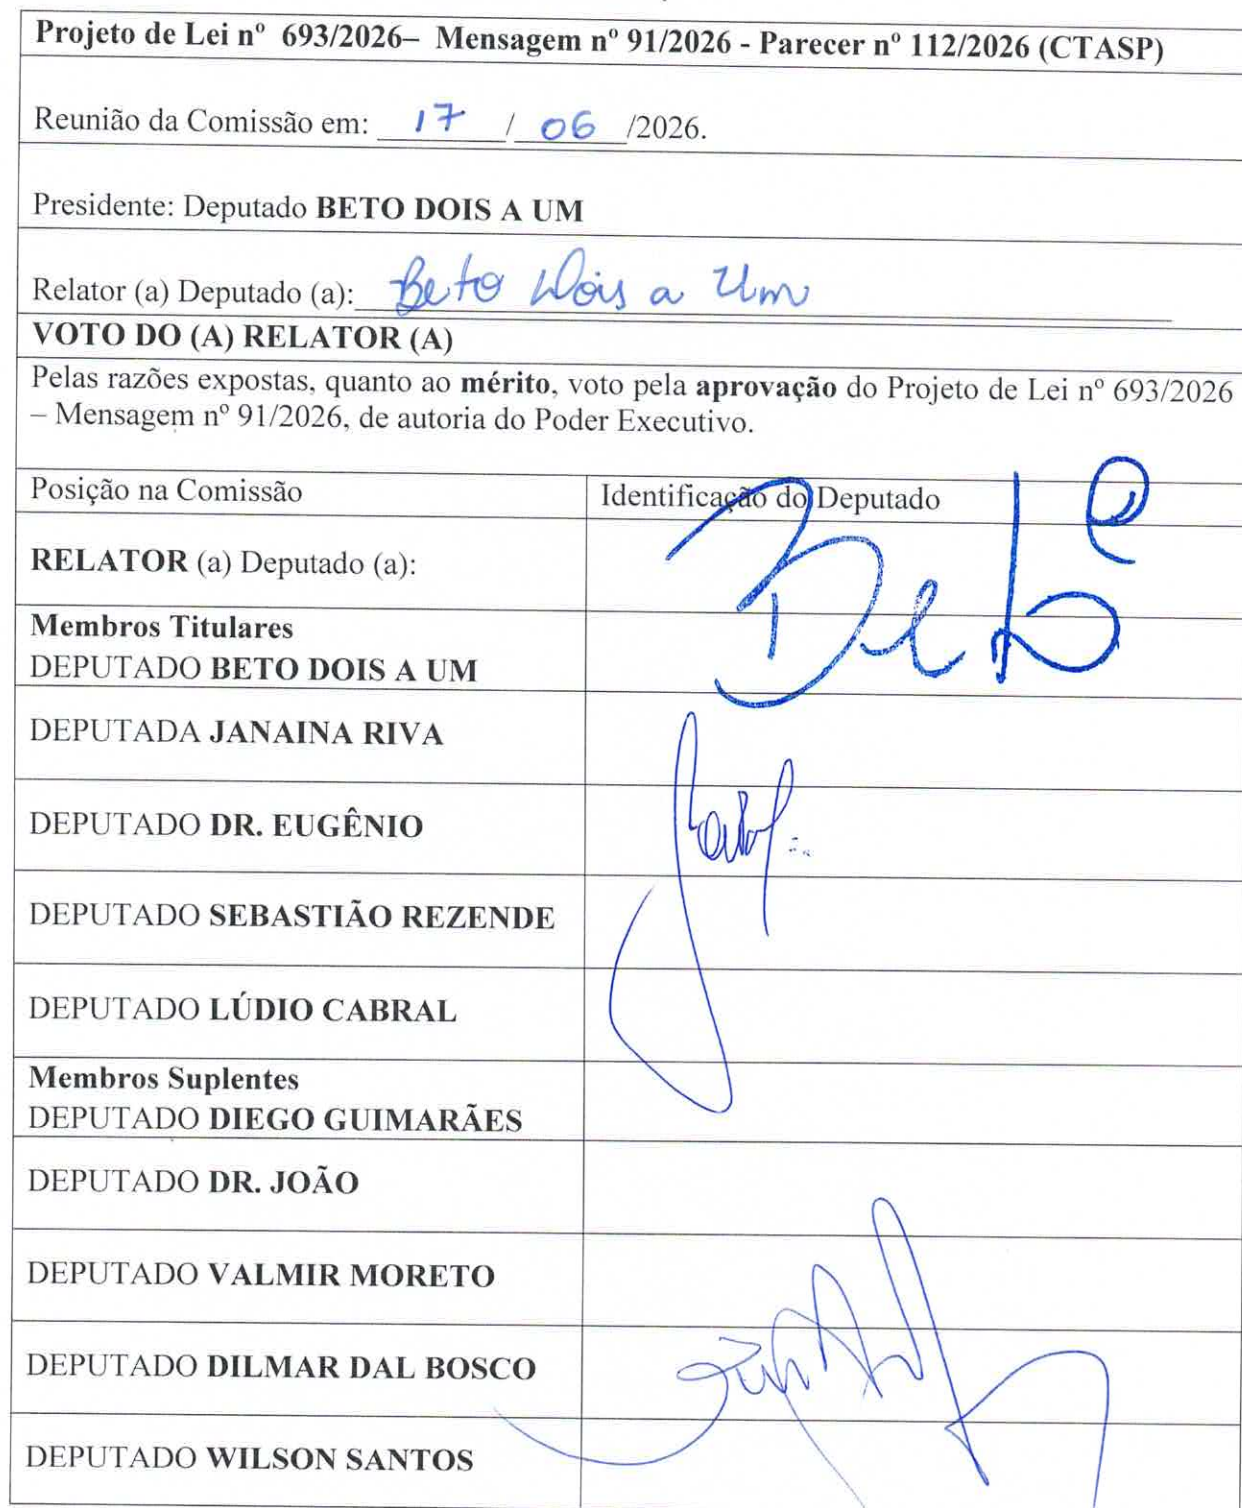 Projeto de Lei nº 693/2026– Mensagem nº 91/2026 - Parecer nº 112/2026 (CTASP)
Reunião da Comissão em: 17 / 06 /2026.
Presidente: Deputado BETO DOIS A UM
Relator (a) Deputado (a): Beto Dois a Um
VOTO DO (A) RELATOR (A)
Pelas razões expostas, quanto ao mérito, voto pela aprovação do Projeto de Lei nº 693/2026
– Mensagem nº 91/2026, de autoria do Poder Executivo.
Posição na Comissão Identificação do Deputado
RELATOR (a) Deputado (a):
Membros Titulares
DEPUTADO BETO DOIS A UM
DEPUTADA JANAINA RIVA
DEPUTADO DR. EUGÊNIO
DEPUTADO SEBASTIÃO REZENDE
DEPUTADO LÚDIO CABRAL
Membros Suplentes
DEPUTADO DIEGO GUIMARÃES
DEPUTADO DR. JOÃO
DEPUTADO VALMIR MORETO
DEPUTADO DILMAR DAL BOSCO
DEPUTADO WILSON SANTOS